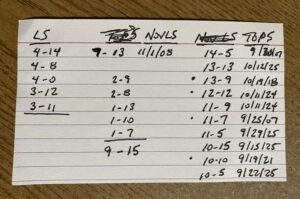 LS NOVLS TOPS
4-14 9-13 11/1/08 14-5 9/30/07
4-8 13-13 10/12/25
4-0 2-9 • 13-9 10/19/18
3-12 2-8 • 12-12 10/11/24
3-11 1-13 11-9 10/11/24
1-10 • 11-7 9/25/07
1-7 11-5 9/29/25
9-15 10-15 9/15/25
• 10-10 9/19/21
10-5 9/22/25